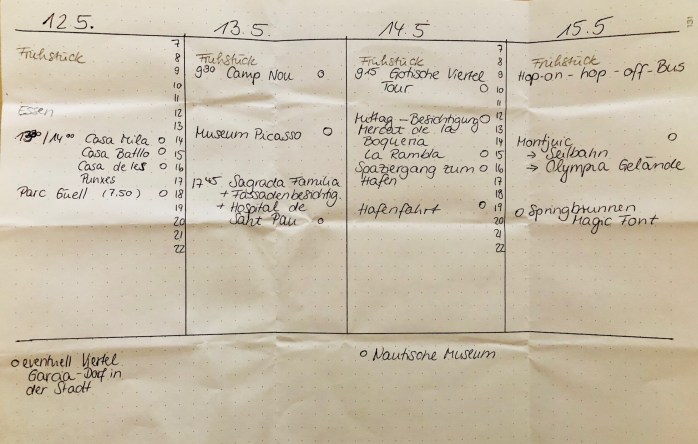 12.5.
7
8
9
10
11
12
13
14
15
16
17
18
19
20
21
22
Frühstück
Essen
13³⁰/14⁰⁰ Casa Mila
Casa Batllo
Casa de les
Punxes
Parc Güell (7.50)
13.5.
Frühstück
9³⁰ Camp Nou
Museum Picasso
17⁴⁵ Sagrada Familia
+ Fassadenbesichtig.
+ Hospital de
Saht Pau
14.5
Frühstück
9¹⁵ Gotische Viertel
Tour
Mittag-Besichtigung
Mercat de la
Boqueria
La Rambla
Spaziergang zum
Hafen
Hafenfahrt
7
8
9
10
11
12
13
14
15
16
17
18
19
20
21
22
15.5
Frühstück
Hop-on-hop-off-Bus
Montjuic
→ Seilbahn
→ Olympia Gelände
Springbrunnen
Magic Font
eventuell Viertel
Garcia-Dorf in
der Stadt
Nautische Museum